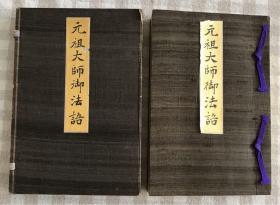 元祖大師御法語
元祖大師御法語